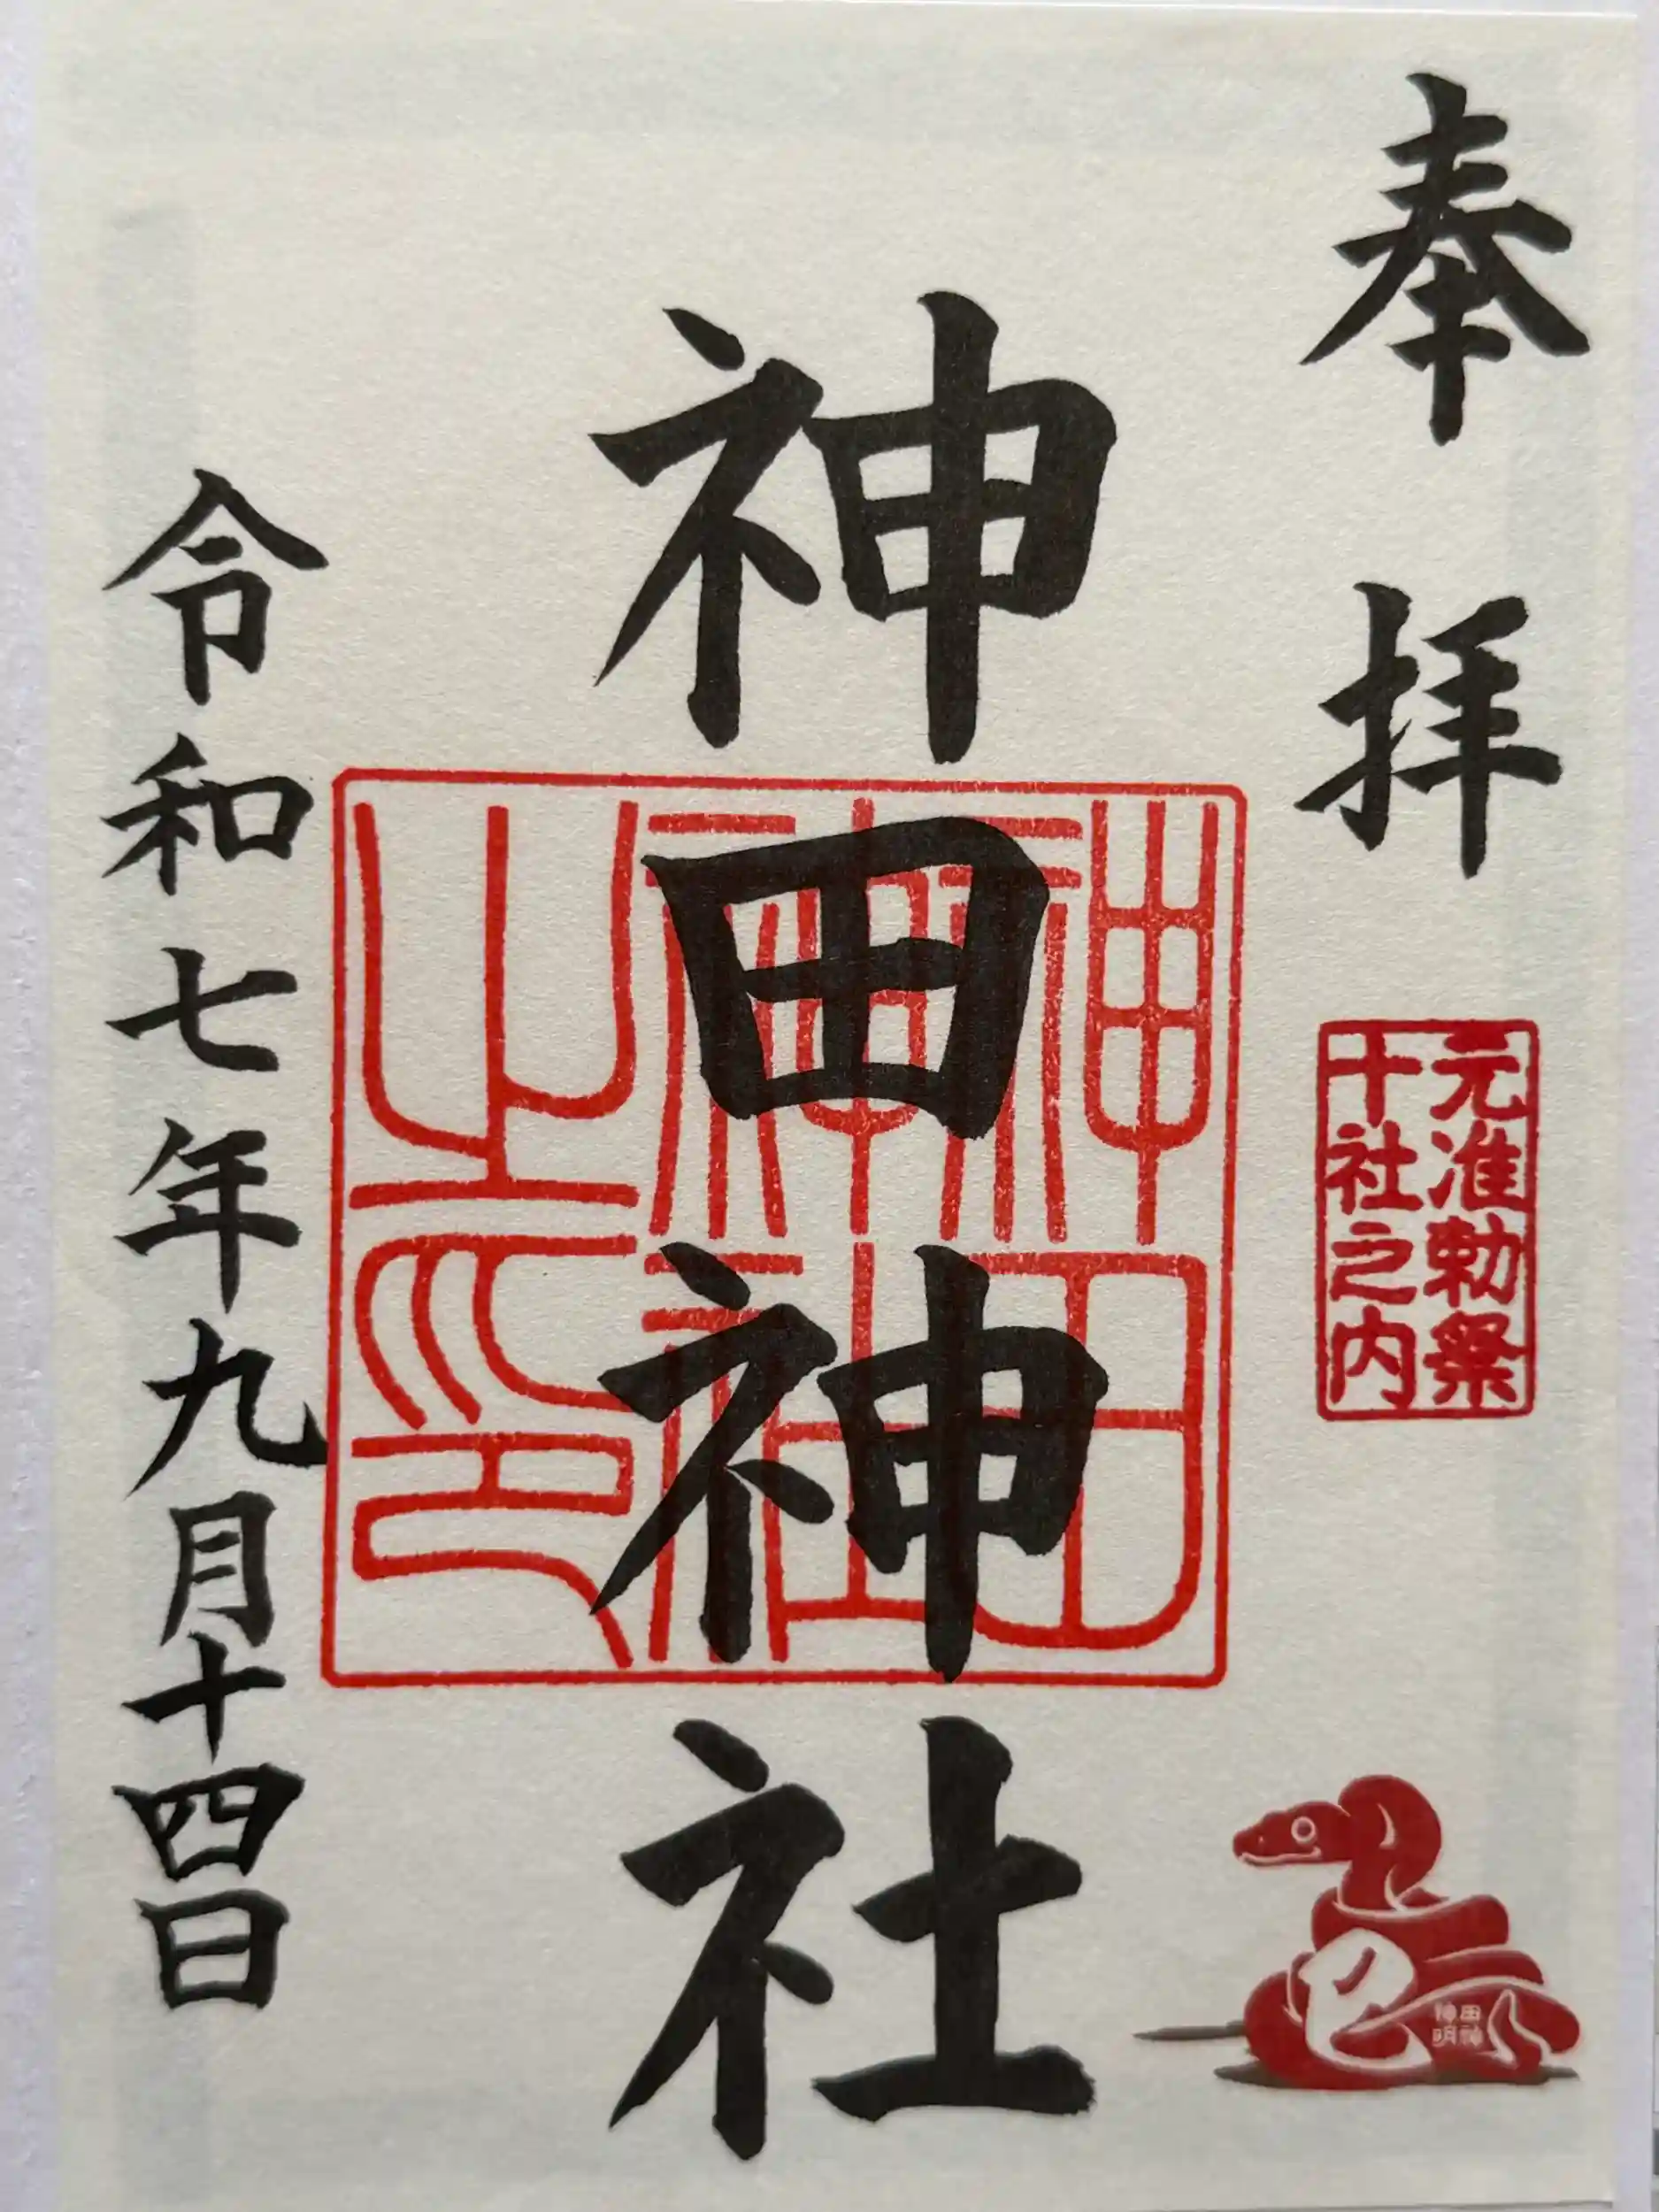 奉拝
元准勅祭
十社之内
神田神社
神田
神社
之印
令和七年九月十四日
巳